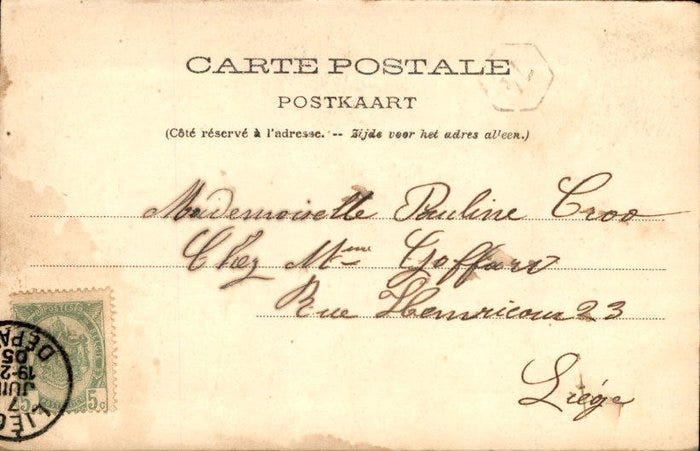 CARTE POSTALE
POSTKAART
(Côté réservé à l'adresse. -- Zijde voor het adres alleen.)
Mademoiselle Pauline Croo
Chez Mme Goffart
Rue Hemricour 23
Liège
5c
LIÉG
DÉPA
JUI
19-2
05